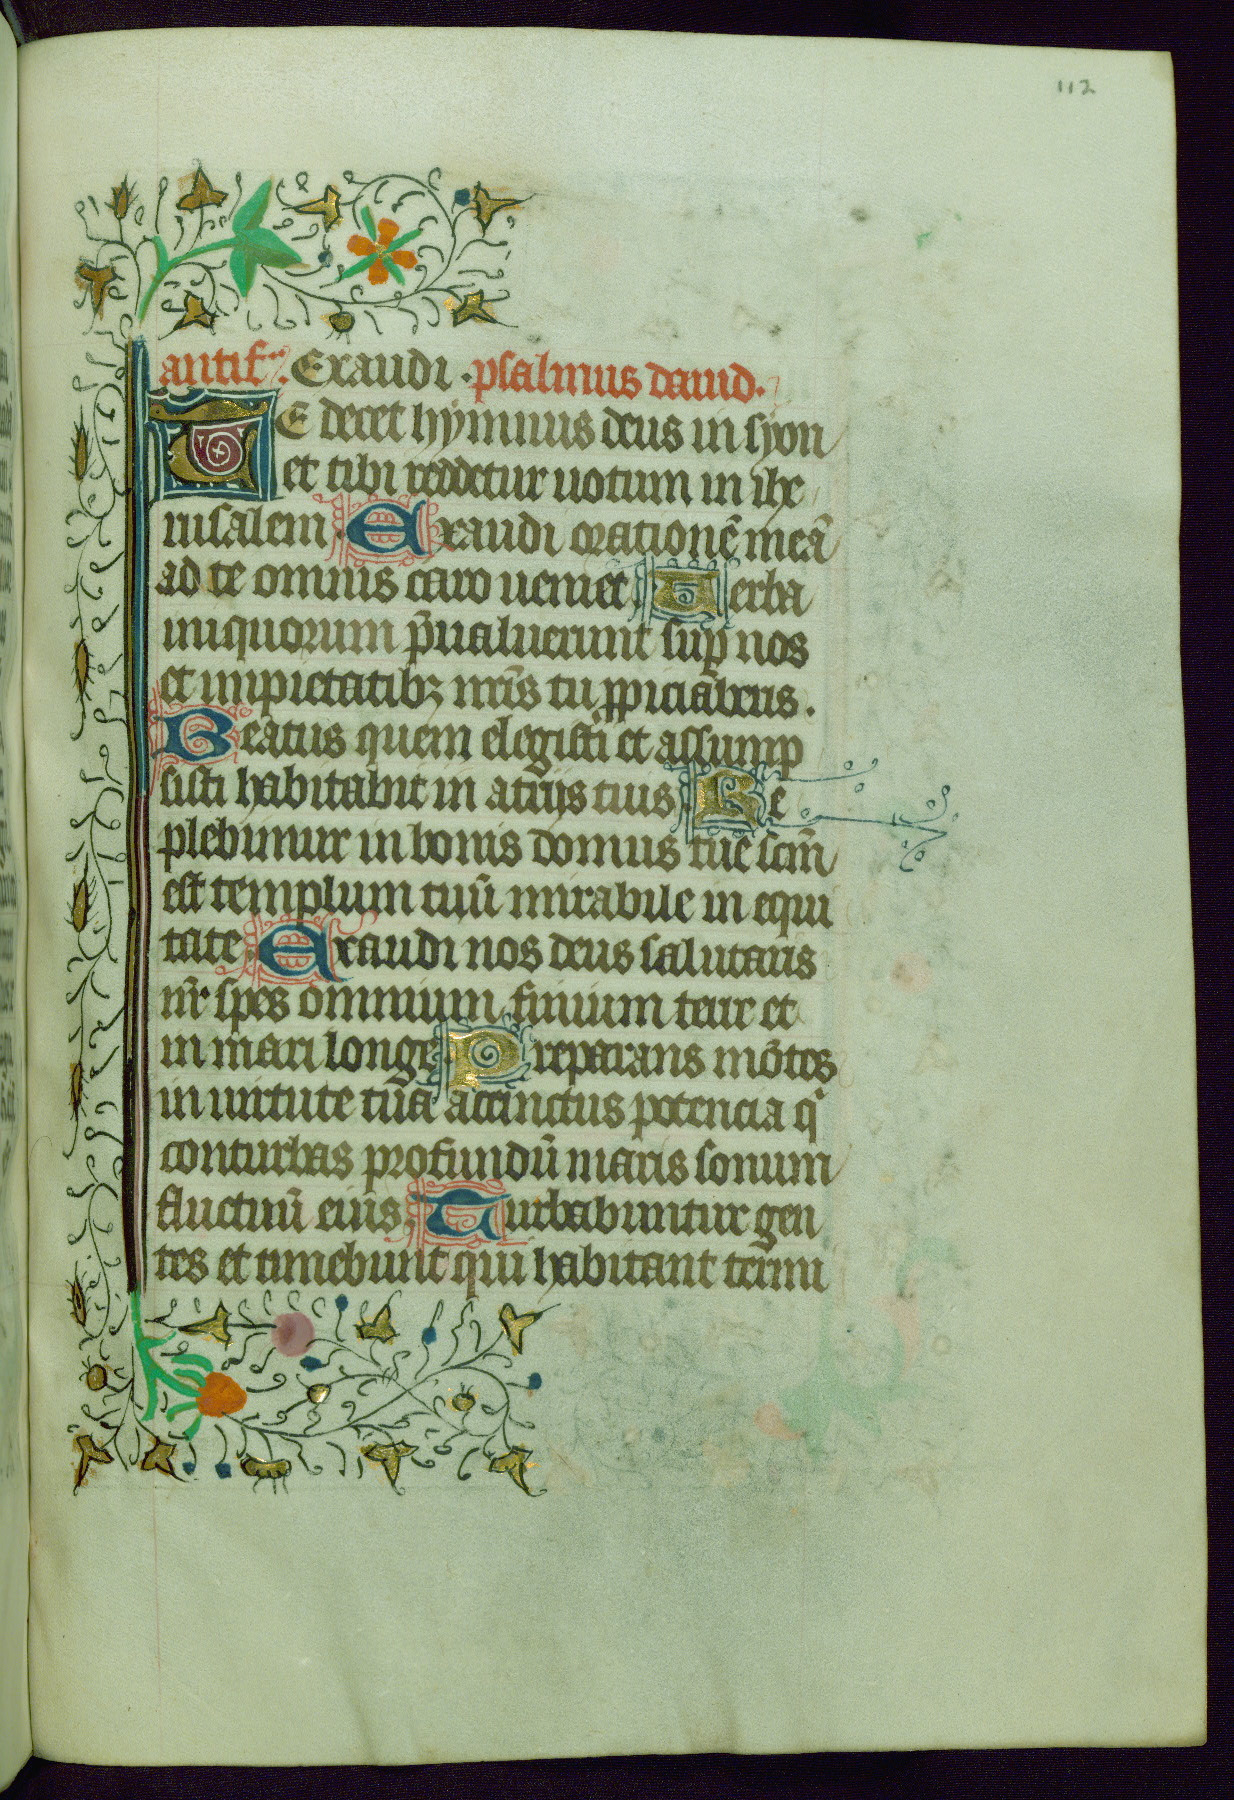 112
antif. Exaudi. psalmus dauid.
TE decet hymnus deus in syon
et tibi reddetur uotum in ihe
rusalem. Exaudi orationē meā
ad te omnis caro ueniet. Uerba
iniquorum p̄ualuerunt sup̱ nos
et impietatibꝫ nr̄is tu ꝓpiciaberis.
Beatus quem elegisti et assump
sisti habitabit in atrijs tuis. Re
plebimur in bonis domus tue sc̄m
est templum tuū mirabile in equi
tate. Exaudi nos deus salutaris
nr̄ spes omnium finium terre et
in mari longe. Preparans mōtes
in uirtute tua accinctus potencia qͥ
conturbas profundū maris sonum
fluctuū eius. Turbabuntur gen
tes et timebunt qui habitant termi